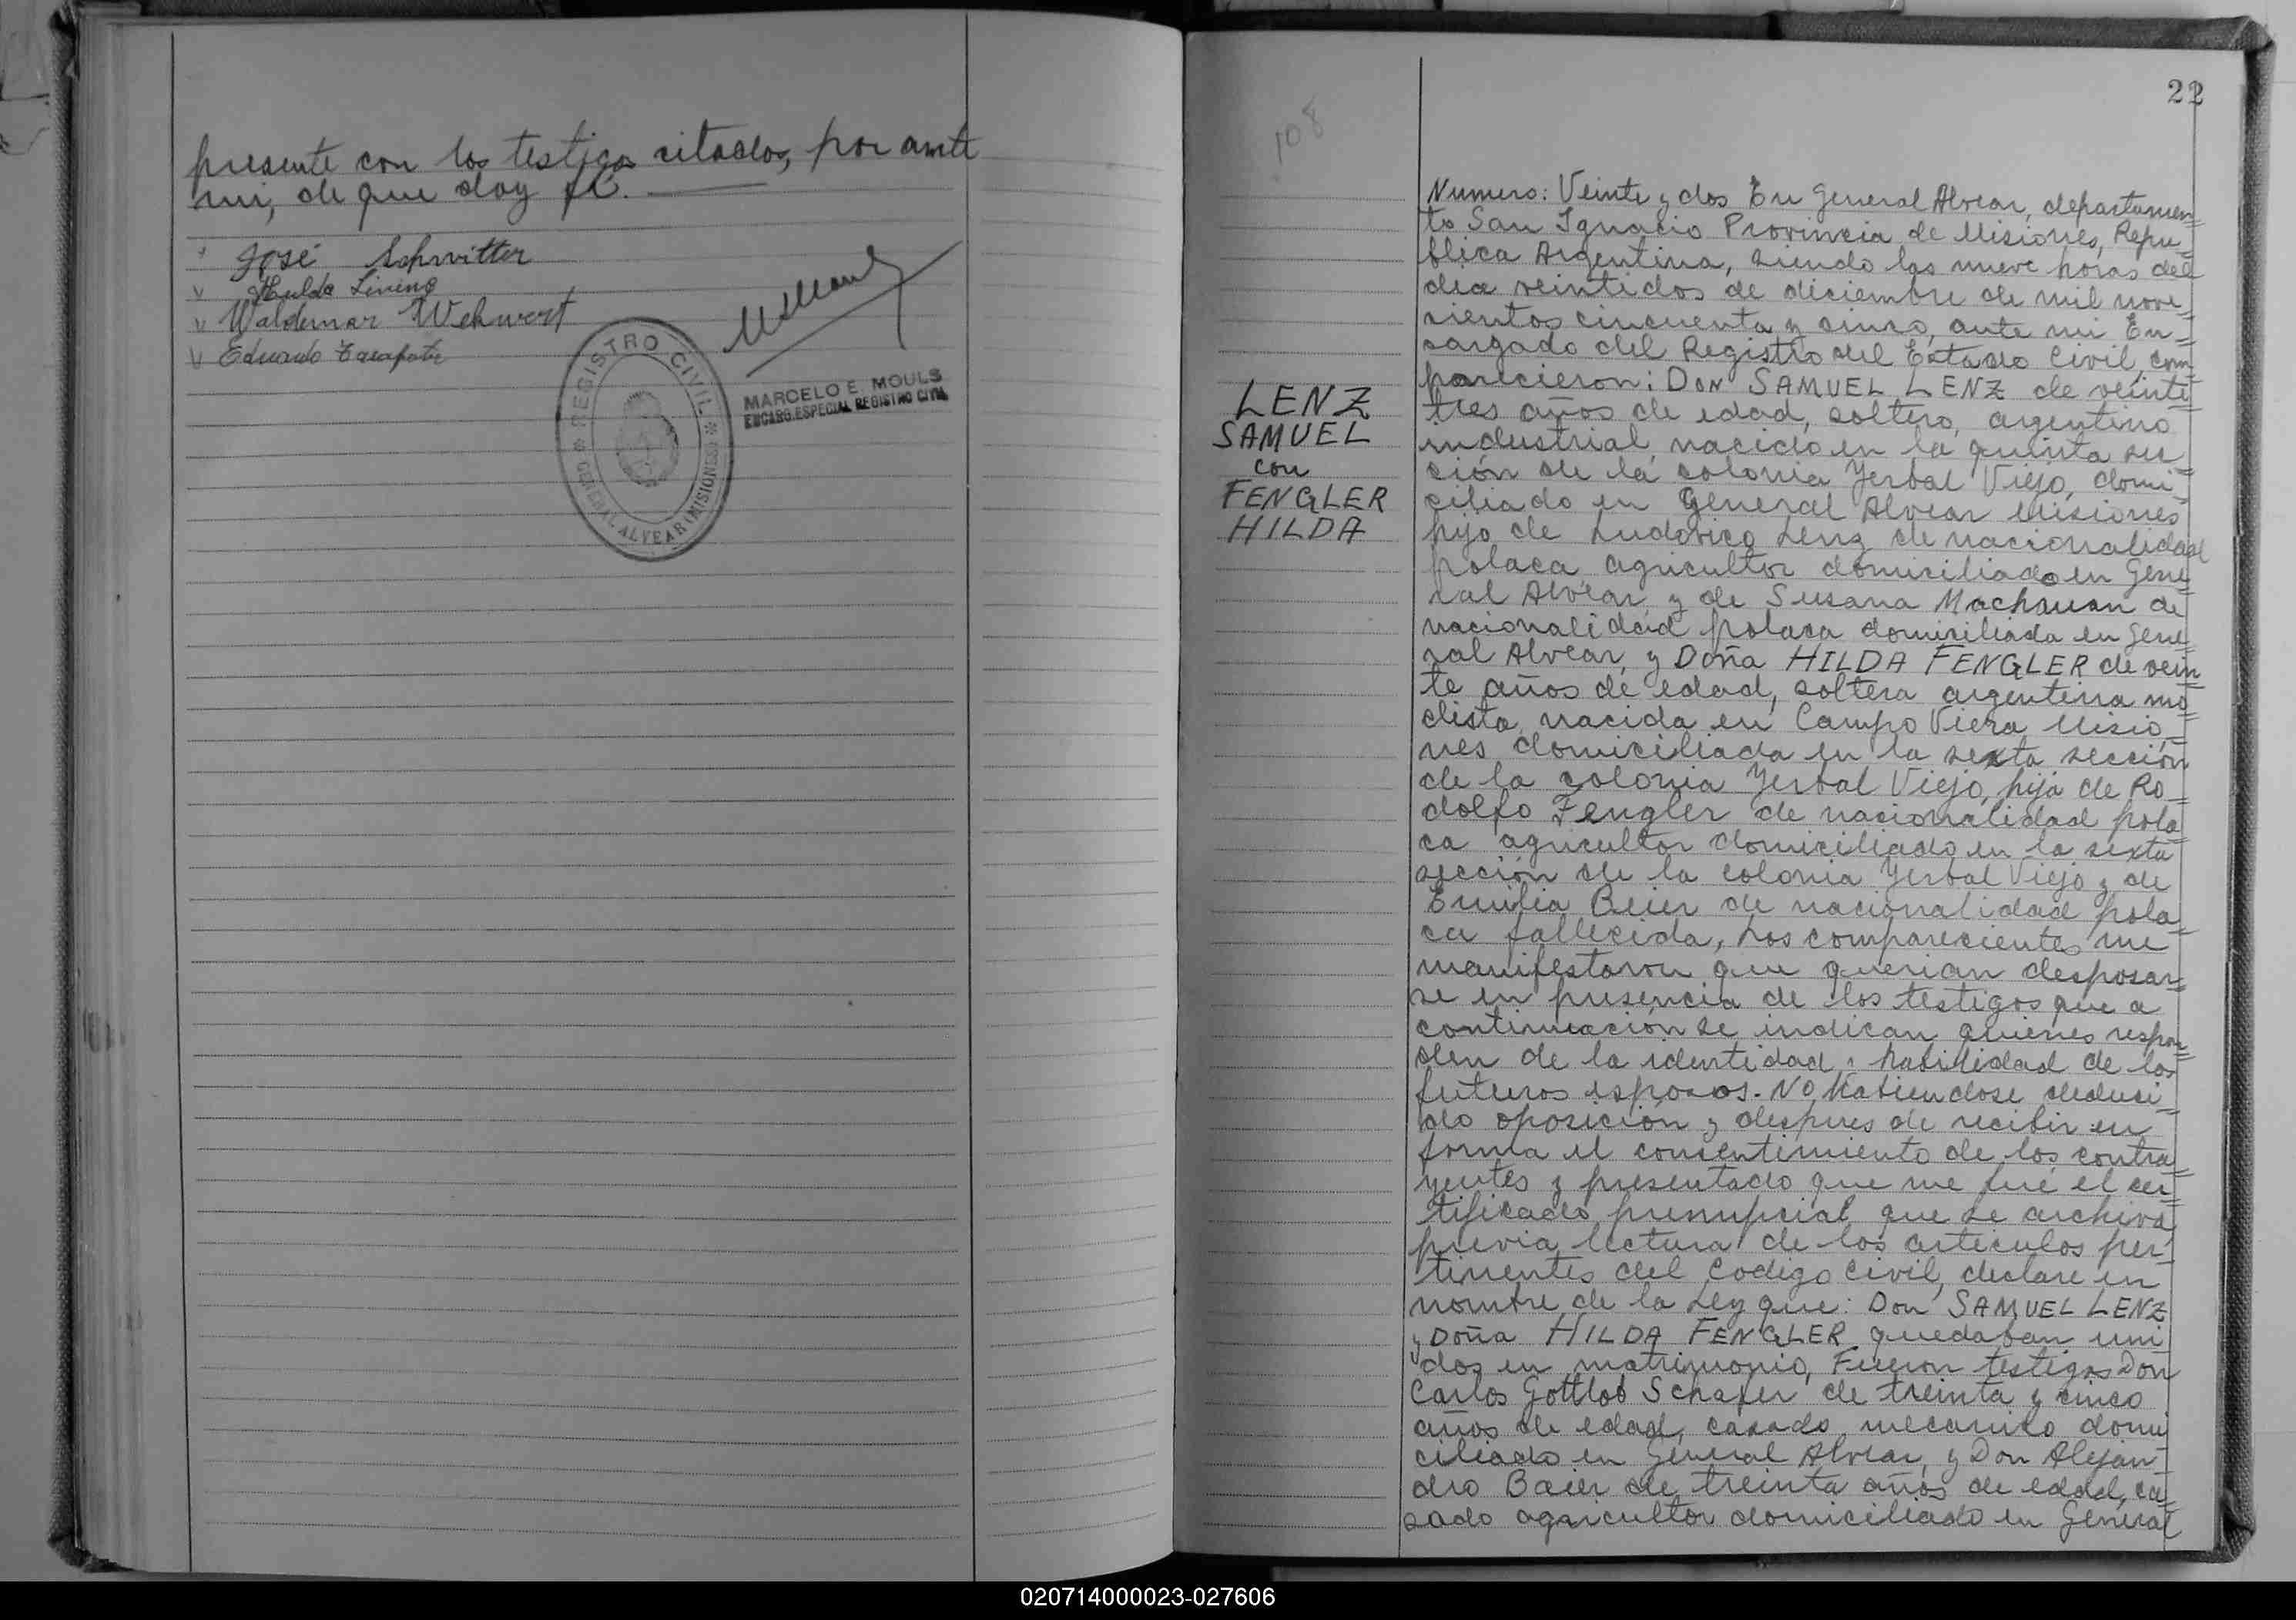 presente con los testigos citados, por ante
mi, de que doy fé.
José Schvitter
Hulda
Waldemar Wehwert
Eduardo
REGISTRO CIVIL
GENERAL ALVEAR (MISIONES)
MARCELO E. MOULS
ENCARG. ESPECIAL REGISTRO CIVIL
22
108
LENZ
SAMUEL
con
FENGLER
HILDA
Numero: Veinte y dos En General Alvear, departamen=
to San Ignacio Provincia de Misiones, Repu=
blica Argentina, siendo las nueve horas del
dia veintidos de diciembre de mil nove=
cientos cincuenta y cinco, ante mi En=
cargado del Registro del Estado Civil, com
parecieron: DON SAMUEL LENZ de veinti
tres años de edad, soltero, argentino
industrial, nacido en la quinta sec=
ción de la colonia Yerbal Viejo, domi=
ciliado en General Alvear Misiones
hijo de Ludovico Lenz de nacionalidad
polaca, agricultor domiciliado en Gene
ral Alvear, y de Susana de
nacionalidad polaca domiciliada en Gene
ral Alvear, y Doña HILDA FENGLER de vein
te años de edad, soltera argentina mo=
dista, nacida en Campo Viera Misio=
nes domiciliada en la sexta sección
de la colonia Yerbal Viejo, hija de Ro=
dolfo Fengler de nacionalidad pola
ca agricultor domiciliado en la sexta
sección de la colonia Yerbal Viejo y de
Emilia Beier de nacionalidad pola=
ca fallecida, Los comparecientes me
manifestaron que querian desposar=
se en presencia de los testigos que a
continuación se indican quienes respon=
den de la identidad y habilidad de los
futuros esposos. No habiendose deduci=
do oposición y despues de recibir en
forma el consentimiento de los contra=
yentes y presentado que me fué el cer=
tificado prenupcial que se archiva,
previa lectura de los articulos per=
tinentes del Codigo Civil, declare en
nombre de la Ley que: Don SAMUEL LENZ
y Doña HILDA FENGLER quedaban uni
dos en matrimonio, Fueron testigos Don
Carlos Gottlob Schafer de treinta y cinco
años de edad, casado mecanico domi
ciliado en General Alvear, y Don Alejan=
dro Baier de treinta años de edad, ca=
sado agricultor domiciliado en General
020714000023-027606